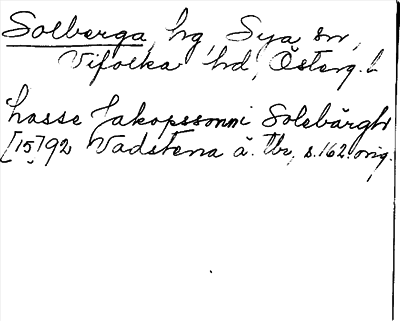 Solberga, hg, Sya sn,
Vifolka hd, Österg. l.
Lasse Jakopssonni Solebärgh
[15]92 Vadstena ä. tbr, s. 162. orig.